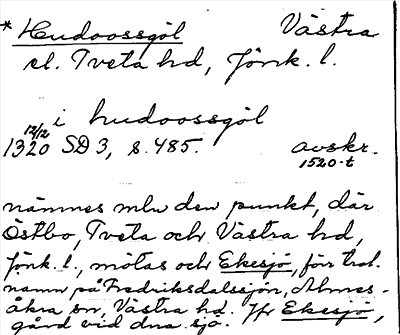 * Hudoossgöl Västra
el. Tveta hd, Jönk. l.
i hudoossgöl
1320 12/12 SD 3, s. 485. avskr.
1520-t
nämnes mlw den punkt, där
Östbo, Tveta och Västra hd,
Jönk. l., mötas och Ekesjö, för trol.
namn på Fredriksdalssjön, Almes-
åkra sn, Västra hd. Jfr Ekesjö,
gård vid dna sjö.